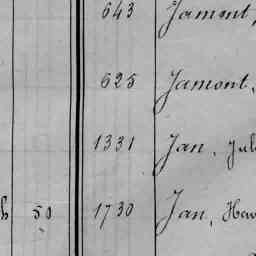 643 Jamont,
625 Jamont,
1331 Jan, Jul
50 1730 Jan, Hen